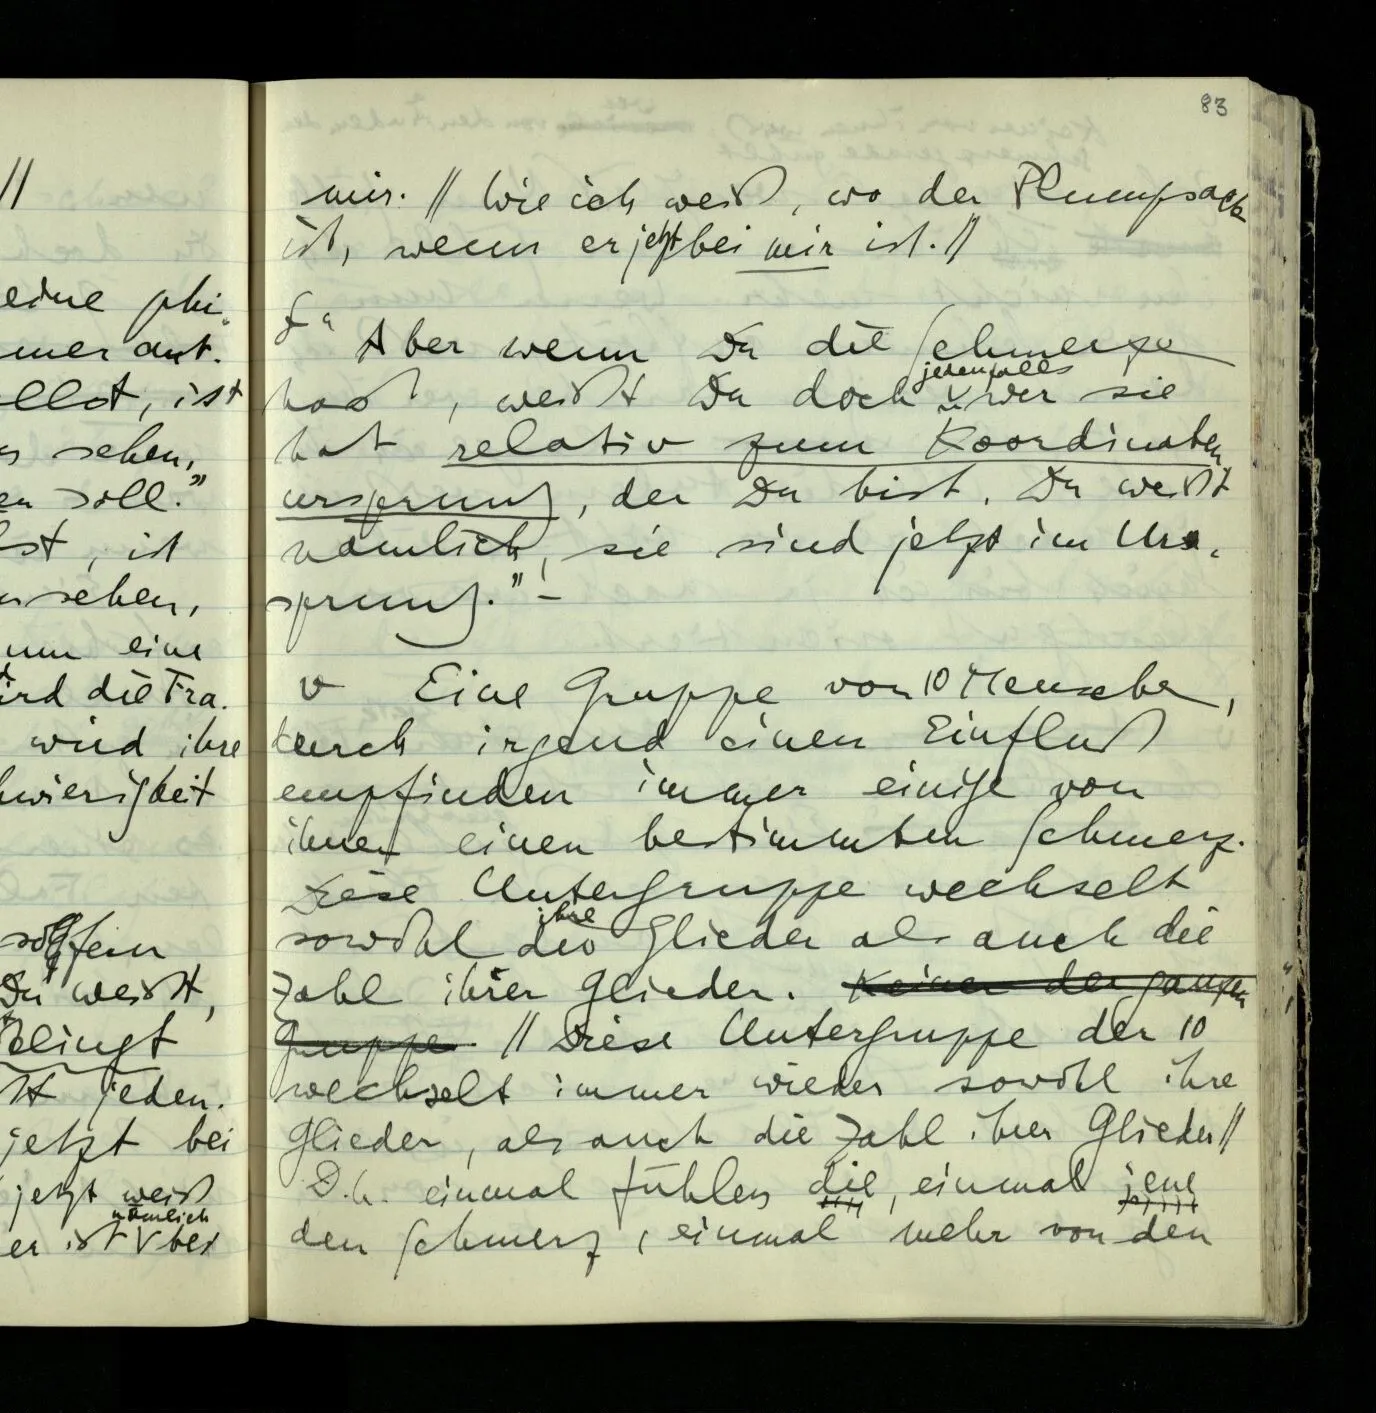 //
eine phi-
mer ant-
ellst, ist
sehen,
en soll."
st, ist
sehen,
nun eine
ird die Fra-
wird ihre
hwierigkeit
sofern
Du weißt,
klingt
jeden.
jetzt bei
jetzt weiß
nämlich
er ist bei
83
mir. // Wie ich weiß, wo der Plumpsack
ist, wenn er jetzt bei mir ist. //
" Aber wenn Du die Schmerze
hast, weißt Du doch jedenfalls wer sie
hat relativ zum Koordinaten
ursprung, der Du bist. Du weißt
nämlich, sie sind jetzt im Ur-
sprung." –
v Eine Gruppe von 10 Menschen,
durch irgend einen Einfluß
empfinden immer einige von
ihnen einen bestimmten Schmerz.
Diese Untergruppe wechselt
sowohl die ihre Glieder als auch die
Zahl ihrer Glieder. Keiner der ganzen
Gruppe // Diese Untergruppe der 10
wechselt immer wieder sowohl ihre
Glieder, als auch die Zahl ihrer Glieder //
D.h. einmal fühlen die, einmal jene
den Schmerz, einmal mehr von den